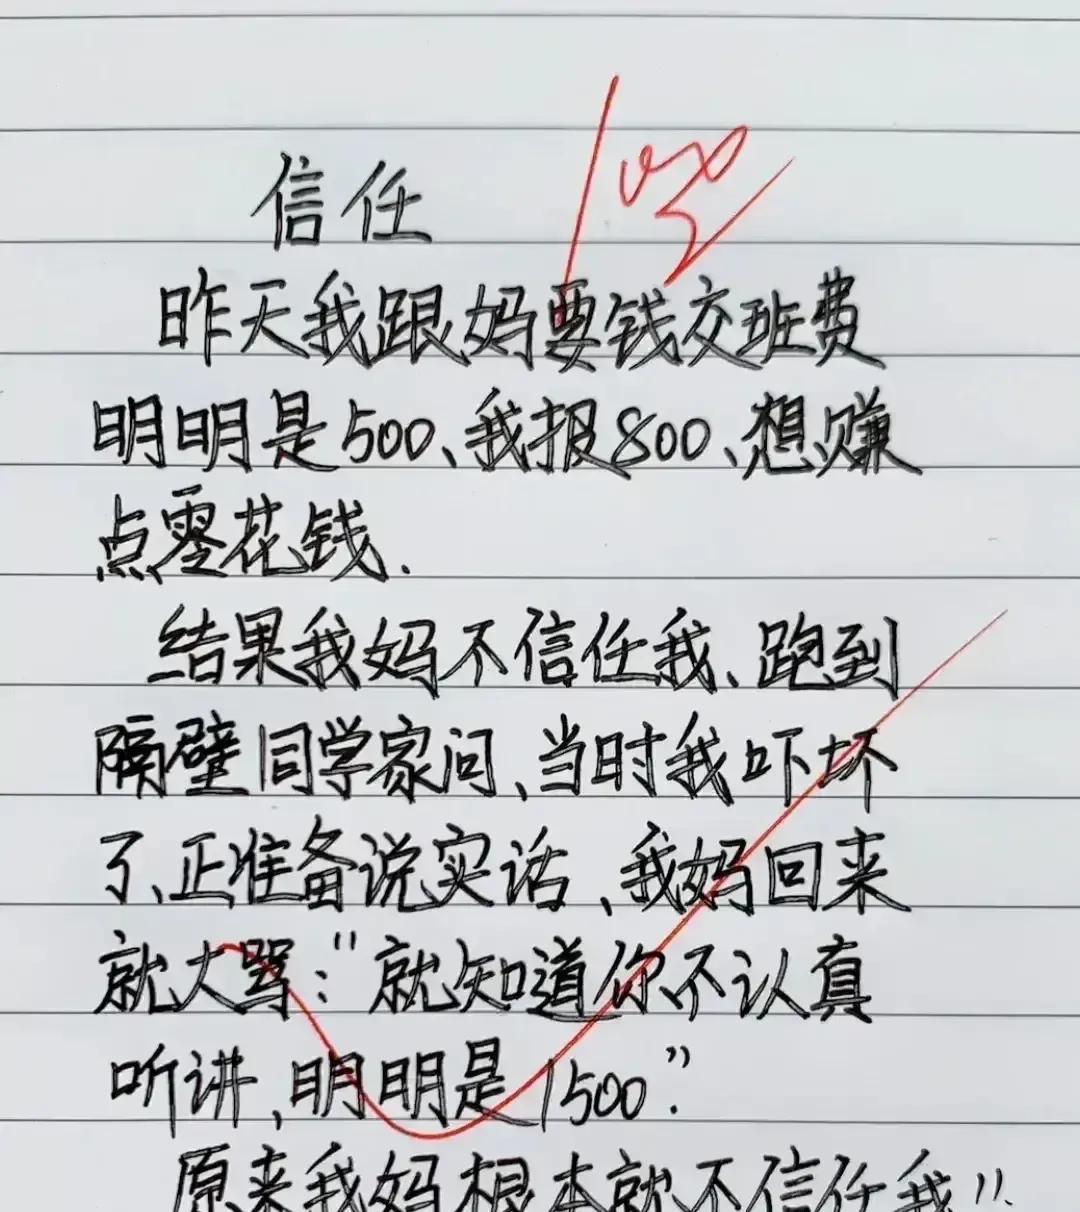 100
信任
昨天我跟妈要钱交班费
明明是500、我报800、想赚
点零花钱.
结果我妈不信任我、跑到
隔壁同学家问、当时我吓坏
了、正准备说实话、我妈回来
就大骂:"就知道你不认真
听讲,明明是1500".
原来我妈根本就不信任我!!